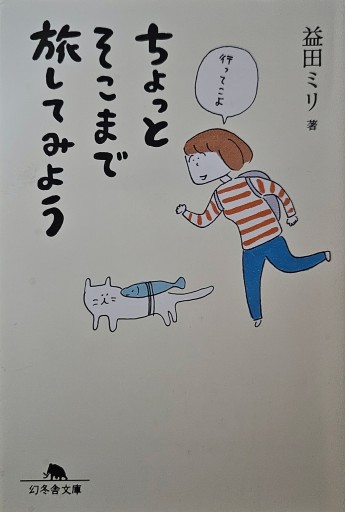 益田ミリ 著
ちょっと
そこまで
旅してみよう
行ってこよ
幻冬舎文庫